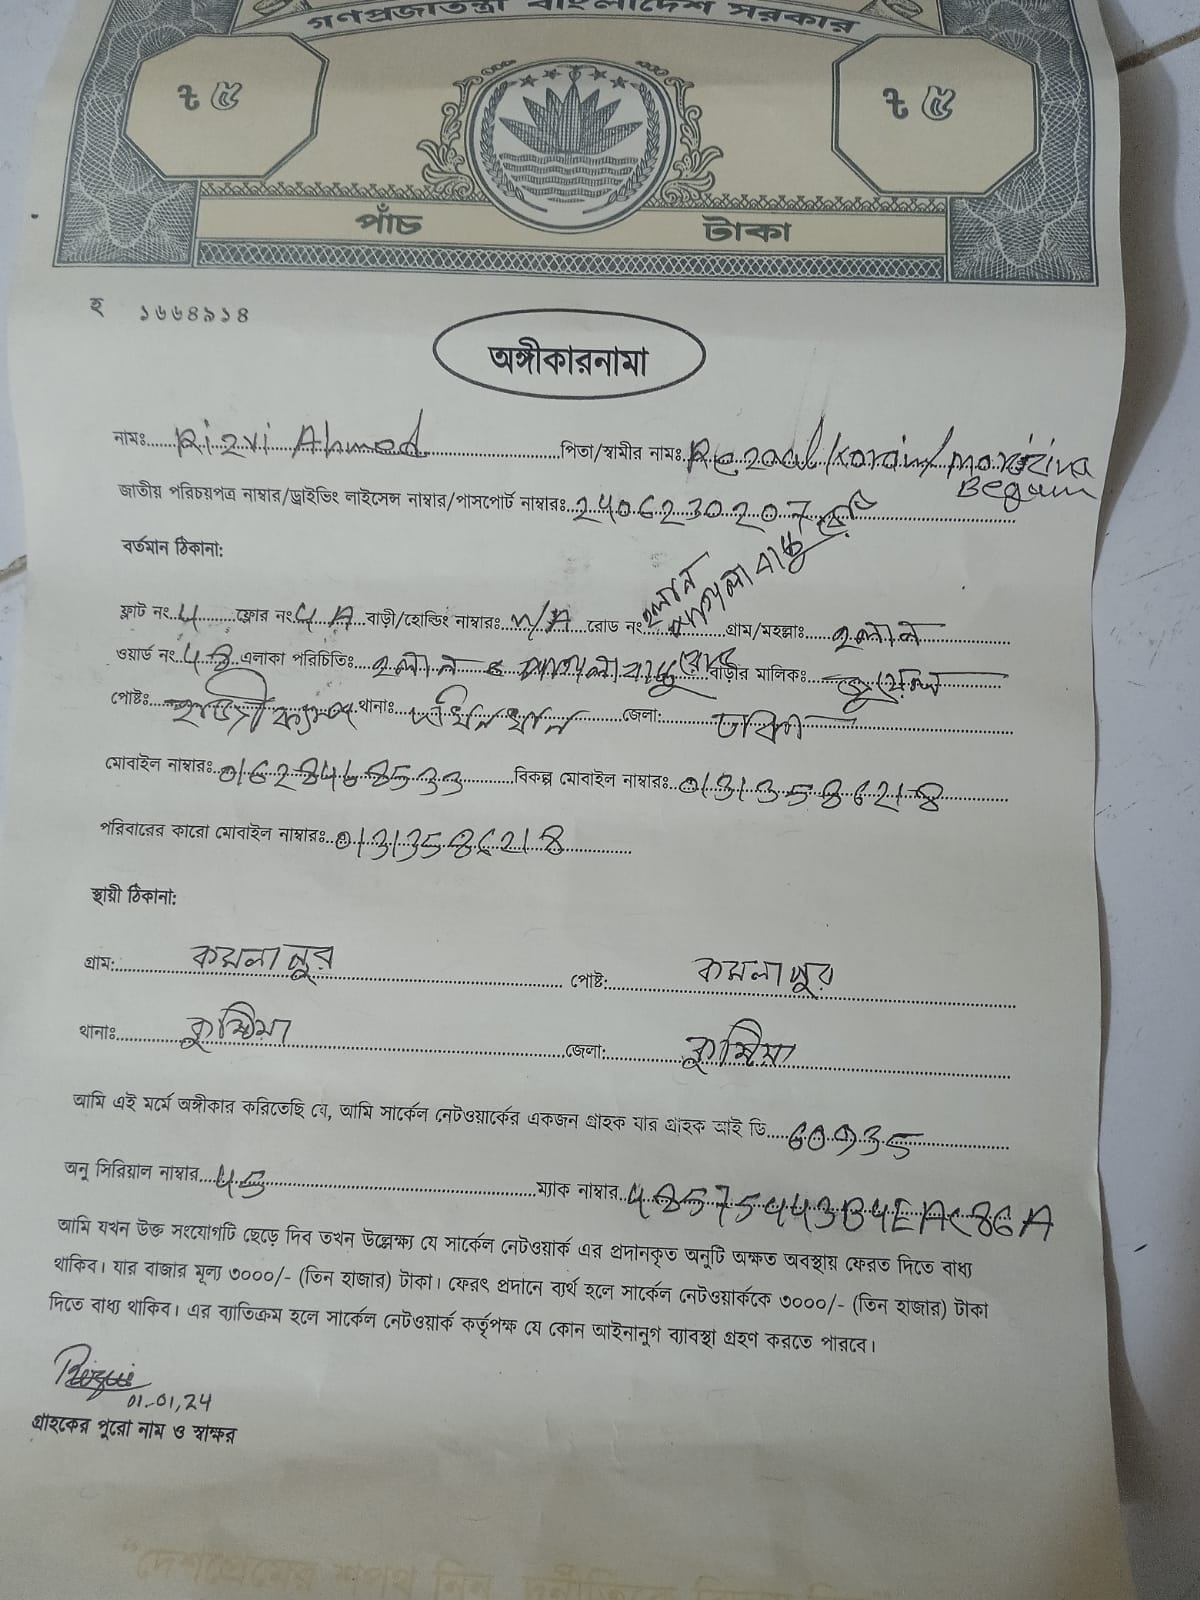 গণপ্রজাতন্ত্রী বাংলাদেশ সরকার
৳ ৫ ৳ ৫
পাঁচ টাকা
হ ১৬৬৪৯১৪
অঙ্গীকারনামা
নামঃ Rizvi Ahmed পিতা/স্বামীর নামঃ Rezaul Karim/
Begum
জাতীয় পরিচয়পত্র নাম্বার/ড্রাইভিং লাইসেন্স নাম্বার/পাসপোর্ট নাম্বারঃ 2406230207
বর্তমান ঠিকানা:
ফ্লাট নং 4 ফ্লোর নং 4 A বাড়ী/হোল্ডিং নাম্বারঃ N/A রোড নং গ্রাম/মহল্লাঃ হলান
ওয়ার্ড নং 48 এলাকা পরিচিতিঃ হলান বাড়ীর মালিকঃ
পোষ্টঃ থানাঃ দক্ষিনখান জেলা: ঢাকা
মোবাইল নাম্বারঃ 01628468533 বিকল্প মোবাইল নাম্বারঃ 01313586218
পরিবারের কারো মোবাইল নাম্বারঃ 01313586218
স্থায়ী ঠিকানা:
গ্রাম: কমলাপুর পোষ্ট: কমলাপুর
থানাঃ কুষ্টিয়া জেলা: কুষ্টিয়া
আমি এই মর্মে অঙ্গীকার করিতেছি যে, আমি সার্কেল নেটওয়ার্কের একজন গ্রাহক যার গ্রাহক আই ডি 60935
অনু সিরিয়াল নাম্বার 45 ম্যাক নাম্বার 48575443B4EAC86A
আমি যখন উক্ত সংযোগটি ছেড়ে দিব তখন উল্লেক্ষ্য যে সার্কেল নেটওয়ার্ক এর প্রদানকৃত অনুটি অক্ষত অবস্থায় ফেরত দিতে বাধ্য
থাকিব। যার বাজার মূল্য ৩০০০/- (তিন হাজার) টাকা। ফেরৎ প্রদানে ব্যর্থ হলে সার্কেল নেটওয়ার্ককে ৩০০০/- (তিন হাজার) টাকা
দিতে বাধ্য থাকিব। এর ব্যাতিক্রম হলে সার্কেল নেটওয়ার্ক কর্তৃপক্ষ যে কোন আইনানুগ ব্যাবস্থা গ্রহণ করতে পারবে।
01-01,24
গ্রাহকের পুরো নাম ও স্বাক্ষর
"দেশপ্রেমের শপথ নিন, দুর্নীতিকে বিদায় দিন"